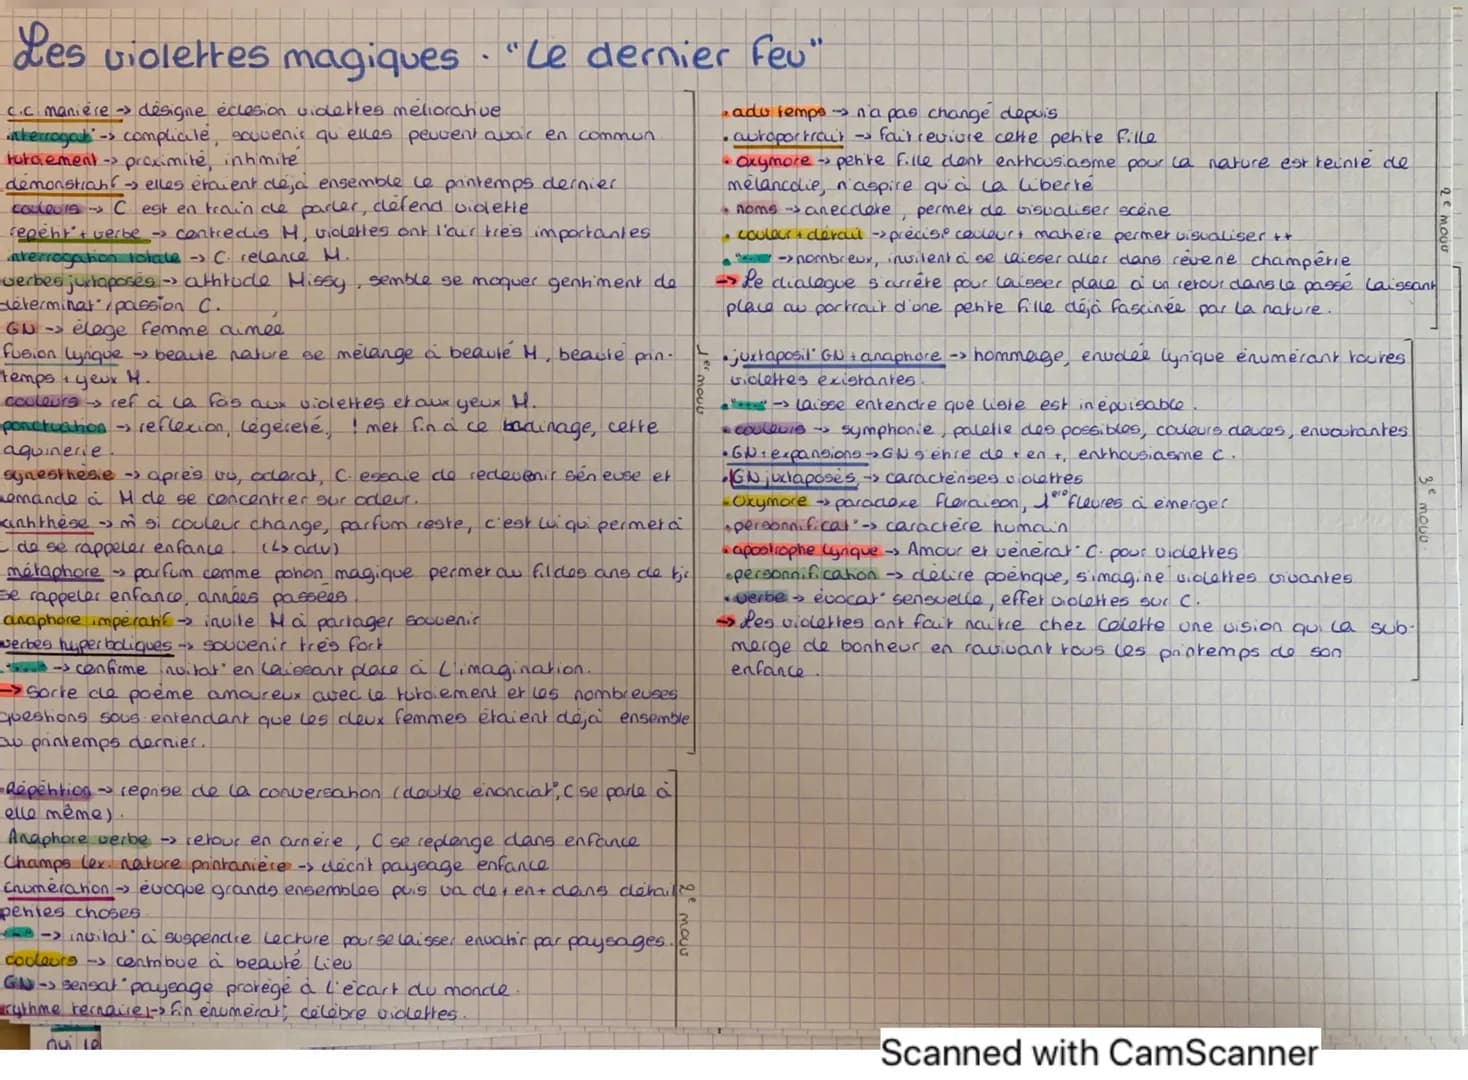 Les violettes magiques . "Le dernier feu"
c.c. manière -> désigne éclosion violettes méliorative
interrogat° -> complicité, souvenir qu'elles peuvent avoir en commun
tutoiement -> proximité, intimité
démonstratif -> elles étaient déjà ensemble le printemps dernier
couleurs -> C est en train de parler, défend violette
répétit° + verbe -> contredis M, violettes ont l'air très importantes
interrogation totale -> C. relance M.
verbes juxtaposés -> attitude Missy, semble se moquer gentiment de
déterminat° / passion C.
GN -> éloge femme aimée
fusion lyrique -> beauté nature se mélange à beauté M, beauté prin-
temps + yeux M.
couleurs -> ref à la fois aux violettes et aux yeux M.
ponctuation -> réflexion, légèreté, ! met fin à ce badinage, cette
taquinerie.
synesthésie -> après vu, odorat, C. essaie de redevenir sérieuse et
demande à M de se concentrer sur odeur.
antithèse -> m̂ si couleur change, parfum reste, c'est lui qui permet à
C de se rappeler enfance. (↳ adv)
métaphore -> parfum comme potion magique permet au fil des ans de tjr
se rappeler enfance, années passées.
anaphore impératif -> invite M à partager souvenir
verbes hyperboliques -> souvenir très fort
"..." -> confirme invitat° en laissant place à l'imagination.
-> Sorte de poème amoureux avec le tutoiement et les nombreuses
questions sous-entendant que les deux femmes étaient déjà ensemble
au printemps dernier.
1er mouv
Répétition -> reprise de la conversation (double énonciat°, C se parle à
elle même).
Anaphore verbe -> retour en arrière, C se replonge dans enfance
Champs lex. nature printanière -> décrit paysage enfance
énumération -> évoque grands ensembles puis va de + en + dans détail
petites choses
"..." -> invitat° à suspendre lecture pour se laisser envahir par paysages.
couleurs -> contribue à beauté lieu
GN -> sensat° paysage protégé à l'écart du monde.
rythme ternaire -> fin énumérat°, célèbre violettes.
2e mouv
. adv temps -> n'a pas changé depuis
. autoportrait -> fait revivre cette petite fille
. Oxymore -> petite fille dont enthousiasme pour la nature est teinté de
mélancolie, n'aspire qu'à la liberté
. noms -> anecdote, permet de visualiser scène
. couleur + détail -> précise couleur + matière permet visualiser ++
. "..." -> nombreux, invitent à se laisser aller dans rêverie champêtre
-> Le dialogue s'arrête pour laisser place à un retour dans le passé laissant
place au portrait d'une petite fille déjà fascinée par la nature.
2e mouv
. juxtaposit° GN + anaphore -> hommage, envolée lyrique énumérant toutes
violettes existantes.
. "..." -> laisse entendre que liste est inépuisable.
. couleurs -> symphonie, palette des possibles, couleurs douces, envoutantes
. GN + expansions -> GN s'étire de + en +, enthousiasme C.
. GN juxtaposés -> caractérises violettes
. Oxymore -> paradoxe floraison, 1ères fleures à émerger
. personnificat° -> caractère humain
. apostrophe lyrique -> Amour et vénérat° C. pour violettes
. personnification -> délire poétique, s'imagine violettes vivantes
. verbe -> évocat° sensuelle, effet violettes sur C.
-> Les violettes ont fait naitre chez Colette une vision qui la sub-
merge de bonheur en ravivant tous les printemps de son
enfance.
3e mouv.
Scanned with CamScanner